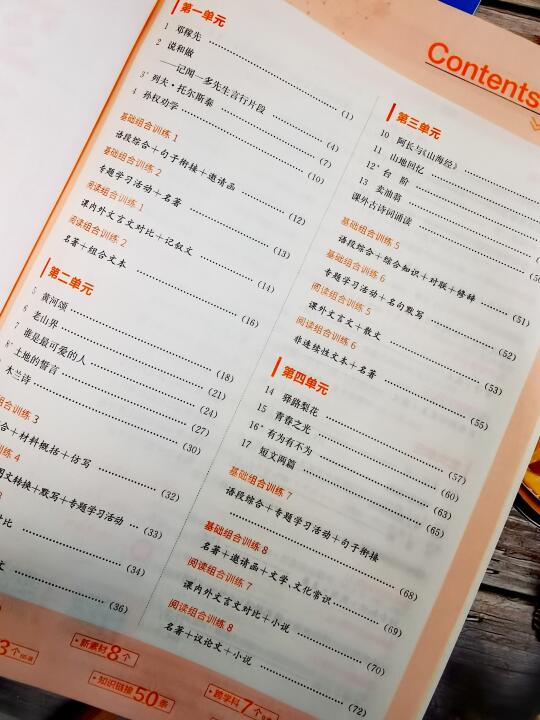 Contents
第一单元
1 邓稼先 (1)
2 说和做
——记闻一多先生言行片段 (4)
3* 列夫·托尔斯泰 (7)
4 孙权劝学 (10)
基础组合训练 1
语段综合+句子衔接+邀请函 (12)
基础组合训练 2
专题学习活动+名著 (13)
阅读组合训练 1
课内外文言文对比+记叙文 (14)
阅读组合训练 2
名著+组合文本 (16)
第二单元
5 黄河颂 (18)
6 老山界 (21)
7 谁是最可爱的人 (24)
8* 土地的誓言 (27)
木兰诗 (30)
组合训练 3
合+材料概括+仿写 (32)
训练 4
图文转换+默写+专题学习活动 (33)
3
对比 (34)
文 (36)
第三单元
10 阿长与《山海经》
11 山地回忆
12* 台 阶
13 卖油翁
课外古诗词诵读
基础组合训练 5
语段综合+综合知识+对联+修辞 (51)
基础组合训练 6
专题学习活动+名句默写 (52)
阅读组合训练 5
课外文言文+散文 (53)
阅读组合训练 6
非连续性文本+名著 (55)
第四单元
14 驿路梨花 (57)
15 青春之光 (60)
16* 有为有不为 (63)
17 短文两篇 (65)
基础组合训练 7
语段综合+专题学习活动+句子衔接 (68)
基础组合训练 8
名著+邀请函+文学、文化常识 (69)
阅读组合训练 7
课内外文言文对比+小说 (70)
阅读组合训练 8
名著+议论文+小说 (72)
3个
新素材8个
知识链接50条
跨学科7个